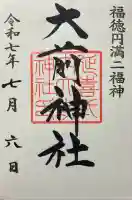 福徳円満二福神
大前神社
令和七年七月六日